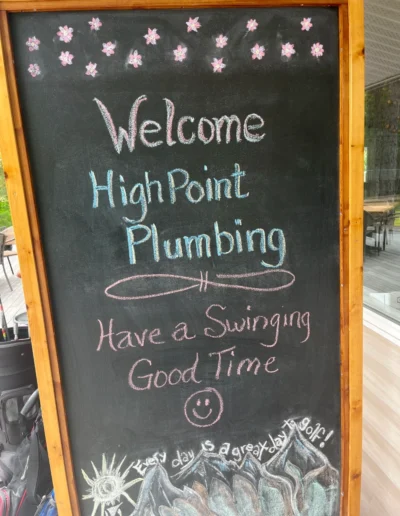 Welcome
HighPoint
Plumbing
Have a Swinging
Good Time
Every day is a great day to golf!